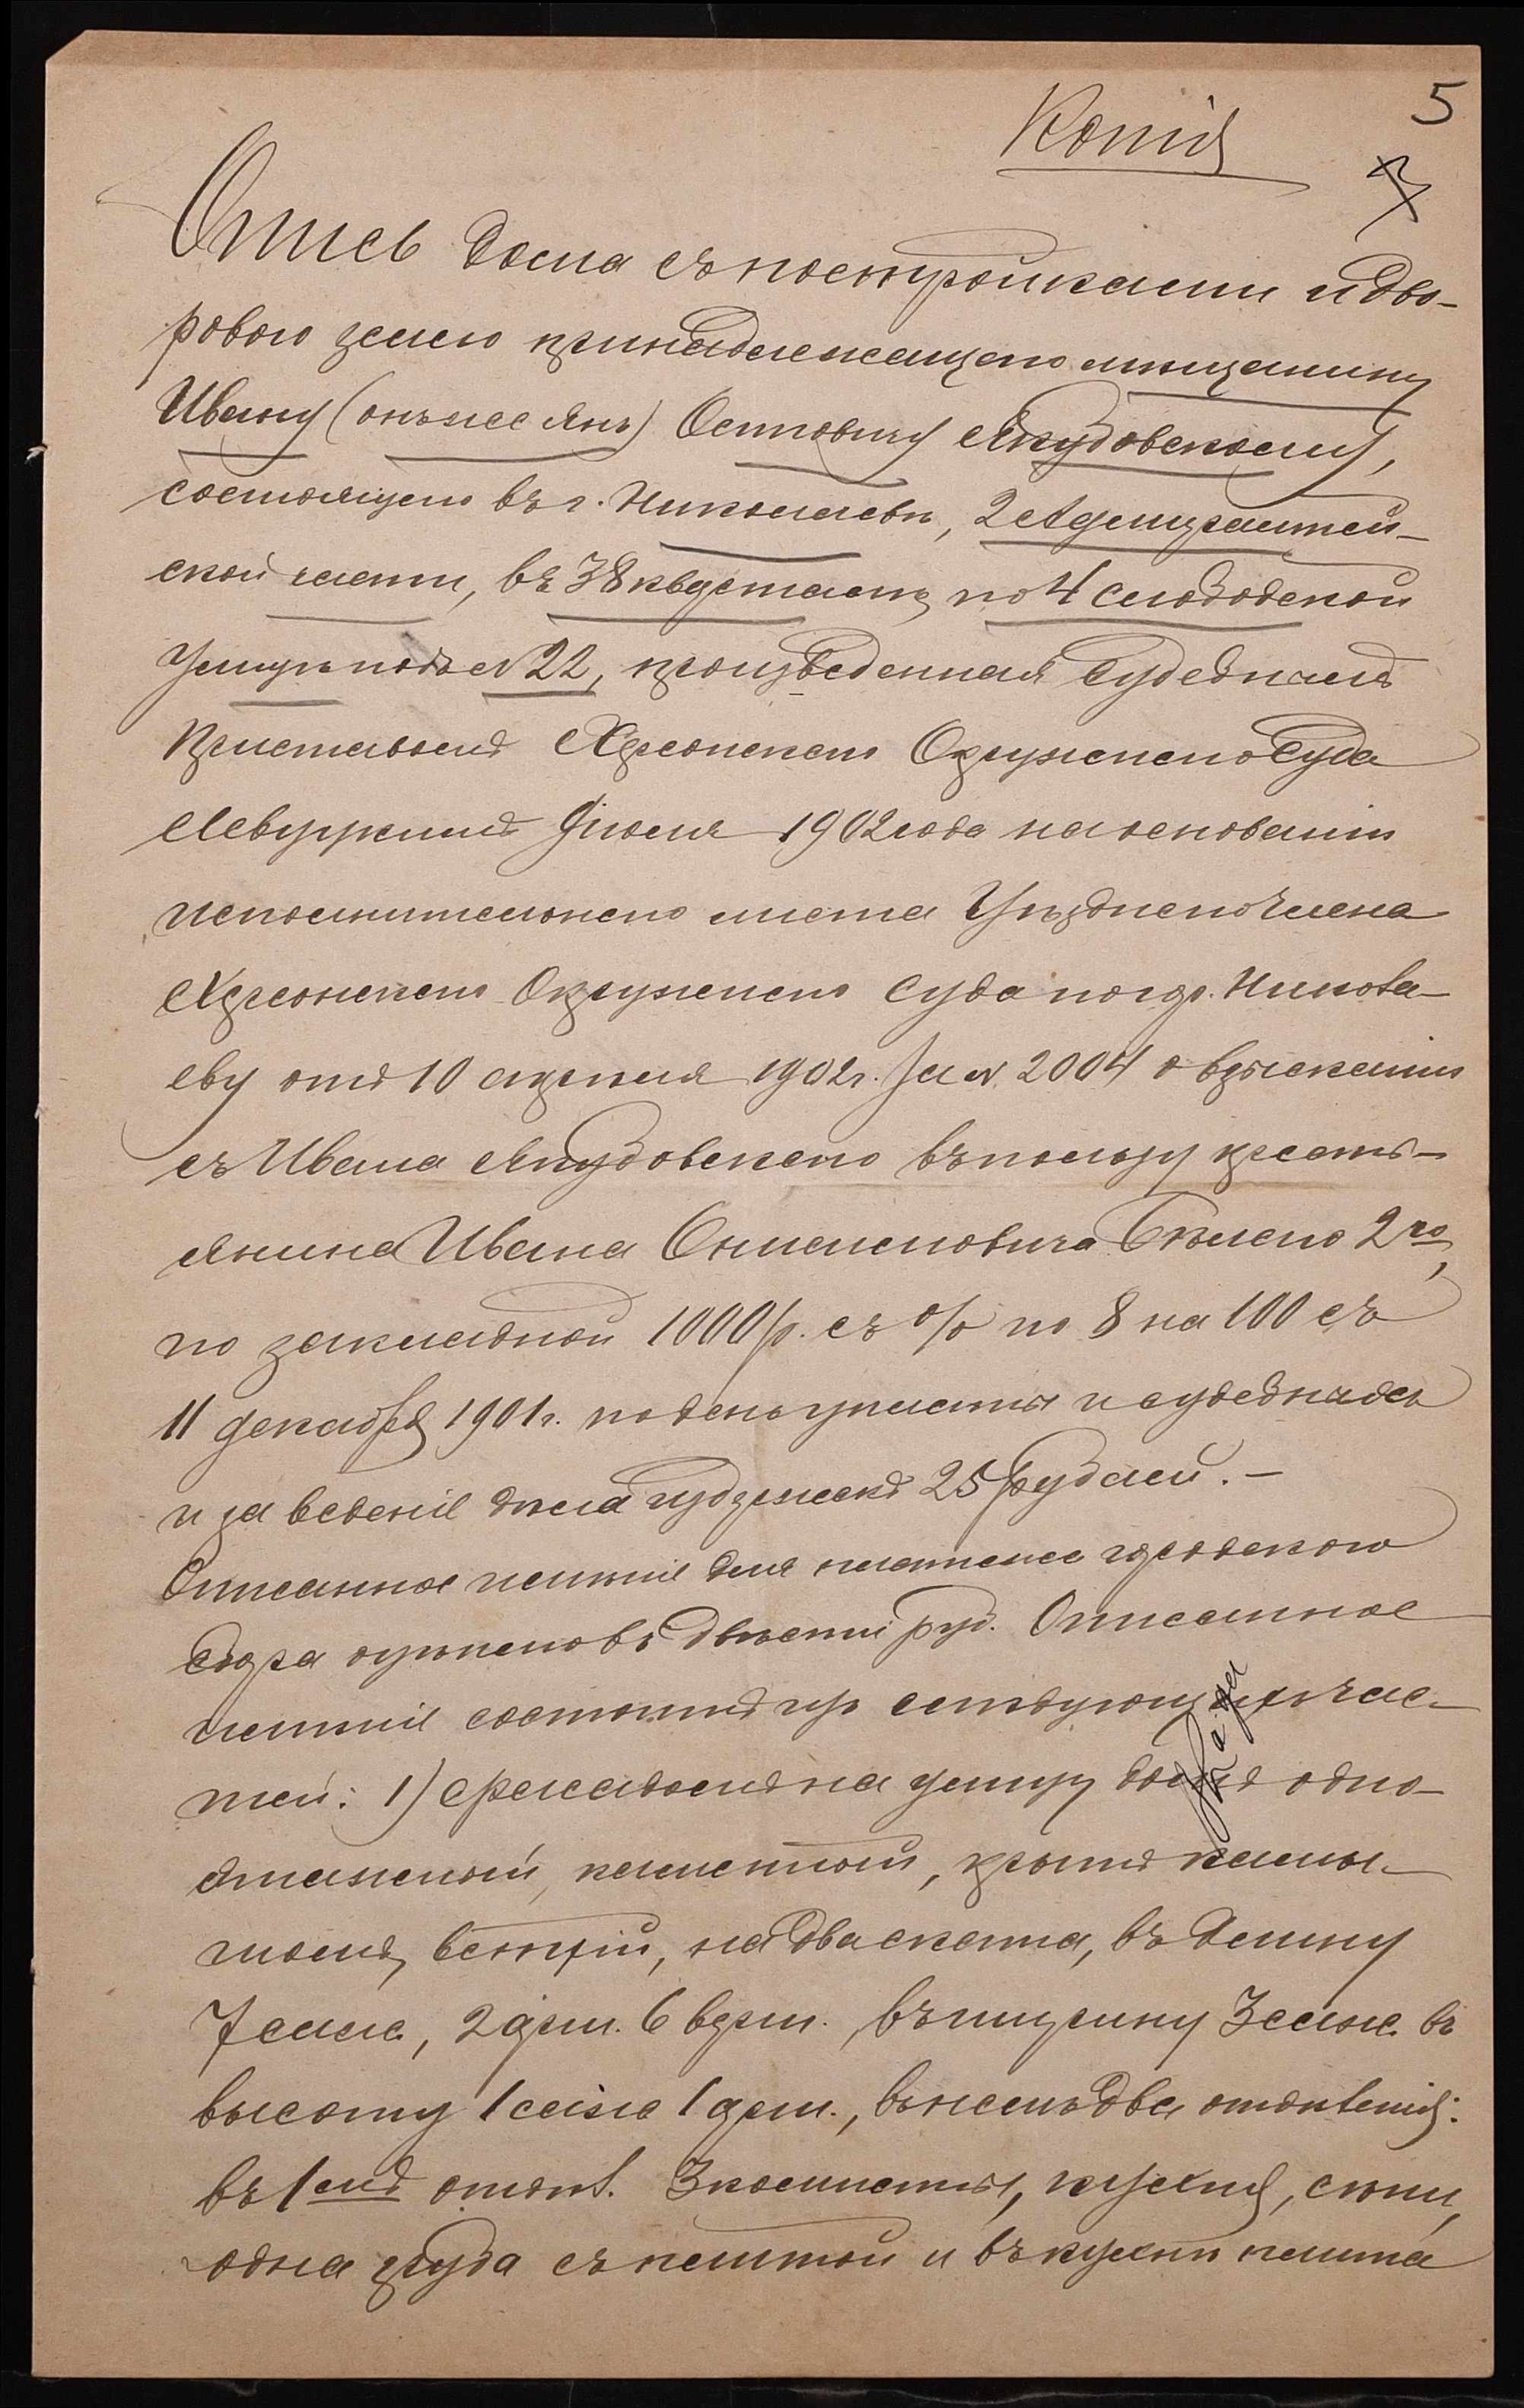 Копія
5
7
Опись дома съ постройками и дво-
ровою землею принадлежащаго мѣщанину
Ивану (онъ же Янъ) Осиповичу Якубовскому,
состоящаго въ г. Николаевѣ, 2 Адмиралтей-
ской части, въ 38 квартале, по 4 слободской
улицѣ подъ № 22, произведенная Судебнымъ
Приставомъ Херсонскаго Окружнаго Суда
9 іюля 1902 года на основаніи
исполнительнаго листа Уѣзднаго Члена
Херсонскаго Окружнаго Суда по гор. Никола-
еву отъ 10 апрѣля 1902 г. за № 2004 о взысканіи
съ Ивана Якубовскаго въ пользу кресть-
янина Ивана Бѣлаго 2го,
по закладной 1000 р. съ % по 8 на 100 съ
11 декабря 1901 г. по день уплаты и судебныхъ
и за веденіе дѣла издержекъ 25 рублей. —
Описанное имѣніе для платежа городского
сбора оцѣнено въ двѣсти руб. Описанное
имѣніе состоитъ изъ слѣдующихъ час-
тей: 1) фасадомъ на улицу домъ одно-
этажный, каменный, крытъ камы-
шомъ, ветхій, на два ската, въ длину
7 саж., 2 арш. 6 верш., въ ширину 3 саж. въ
высоту 1 саж. 1 арш., въ немъ два отдѣленія:
въ 1емъ отдѣл. 3 комнаты, кухня, сѣни,
одна груба съ плитой и въ кухнѣ плита